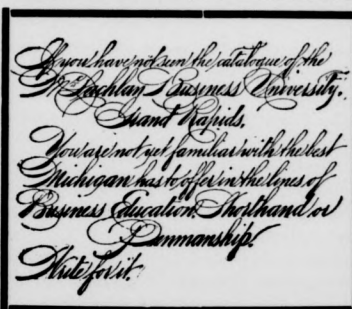 If you have not seen the catalogue of the
McLachlan Business University.
Grand Rapids,
You are not yet familiar with the best
Michigan has to offer in the lines of
Business Education, Shorthand or
Penmanship.
Write for it.